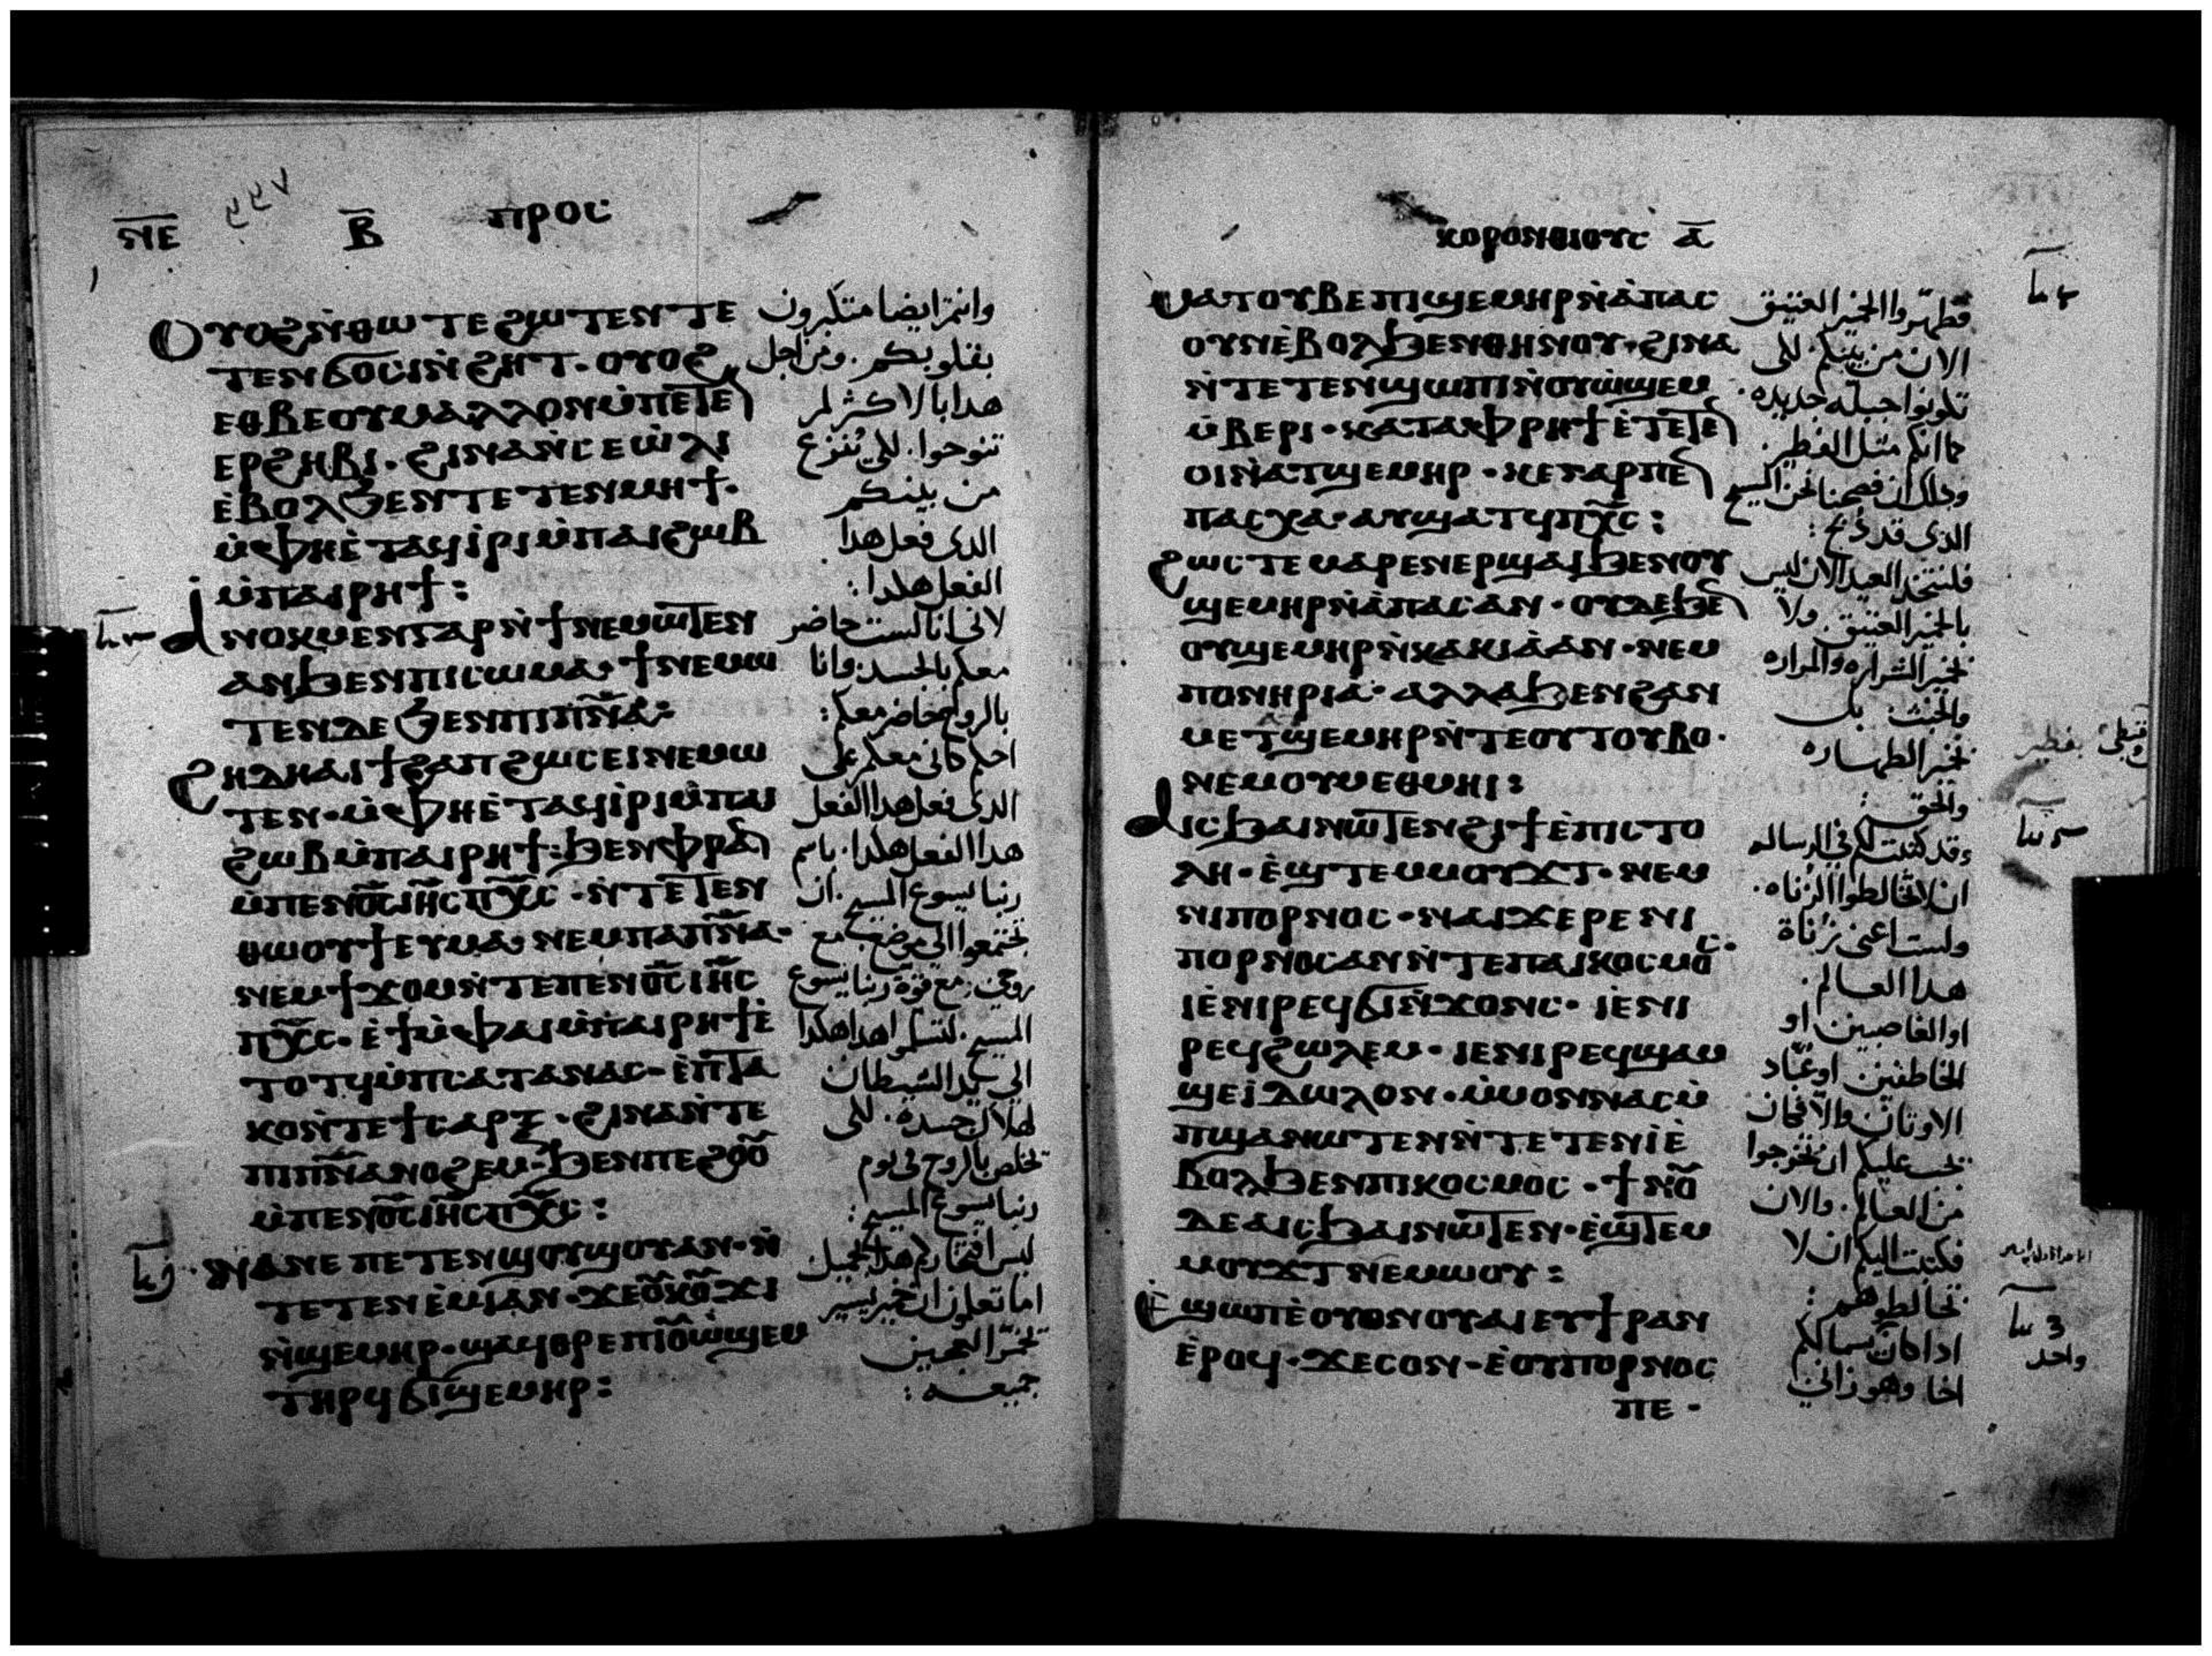 ⲛⲉ
ⲃ
ⲡⲣⲟⲥ
ⲟⲩⲟϩ ⲛ̀ⲑⲱⲧⲉ ϩⲱⲧⲉⲛ ⲧⲉ
ⲧⲉⲛϭⲟⲥⲓ ⲛ̀ϩⲏⲧ · ⲟⲩⲟϩ
ⲉⲑⲃⲉ ⲟⲩⲙⲁⲗⲗⲟⲛ ⲙ̀ⲡⲉⲧⲉ
ⲉⲣϩⲏⲃⲓ · ϩⲓⲛⲁ ⲛ̀ⲥⲉⲱ̀ⲗⲓ
ⲉ̀ⲃⲟⲗϧⲉⲛ ⲧⲉⲧⲉⲛⲙⲏϯ ·
ⲙ̀ⲫⲏ ⲉ̀ⲧⲁϥⲓ̀ⲣⲓ ⲙ̀ⲡⲁⲓϩⲱⲃ
ⲙ̀ⲡⲁⲓⲣⲏϯ :
ⲁ̀ⲛⲟⲕ ⲙⲉⲛ ⲅⲁⲣ ⲛ̀ϯⲛⲉⲙⲱⲧⲉⲛ
ⲁⲛ ϧⲉⲛ ⲡⲓⲥⲱⲙⲁ · ϯⲛⲉⲙⲱ
ⲧⲉⲛ ⲇⲉ ϧⲉⲛ ⲡⲓⲡ̅ⲛ̅ⲁ̅ :
ϩⲏⲇⲏ ⲁⲓϯϩⲁⲡ ϩⲱⲥ ⲉⲓⲛⲉⲙⲱ
ⲧⲉⲛ · ⲙ̀ⲫⲏ ⲉ̀ⲧⲁϥⲓ̀ⲣⲓ ⲙ̀ⲡⲁⲓ
ϩⲱⲃ ⲙ̀ⲡⲁⲓⲣⲏϯ : ϧⲉⲛ ⲫⲣⲁⲛ
ⲙ̀ⲡⲉⲛⲟ̅ⲥ̅ ⲓⲏ̅ⲥ̅ ⲡⲭ̅ⲥ̅ · ⲛ̀ⲧⲉⲧⲉⲛ
ⲑⲱⲟⲩϯ ⲉⲩⲙⲁ · ⲛⲉⲙ ⲡⲁⲡ̅ⲛ̅ⲁ̅ ·
ⲛⲉⲙ ϯϫⲟⲙ ⲛ̀ⲧⲉ ⲡⲉⲛⲟ̅ⲥ̅ ⲓⲏ̅ⲥ̅
ⲡⲭ̅ⲥ̅ · ⲉ̀ϯ ⲙ̀ⲫⲁⲓ ⲙ̀ⲡⲁⲓⲣⲏϯ ⲉ̀
ⲧⲟⲧϥ ⲙ̀ⲡⲥⲁⲧⲁⲛⲁⲥ · ⲉ̀ⲡⲧⲁ
ⲕⲟ ⲛ̀ⲧⲉ ϯⲥⲁⲣⲝ · ϩⲓⲛⲁ ⲛ̀ⲧⲉ
ⲡⲓⲡ̅ⲛ̅ⲁ̅ ⲛⲟϩⲉⲙ · ϧⲉⲛ ⲡⲉϩⲟⲟ
ⲙ̀ⲡⲉⲛⲟ̅ⲥ̅ ⲓⲏ̅ⲥ̅ ⲡⲭ̅ⲥ̅ :
ⲛⲁⲛⲉ ⲡⲉⲧⲉⲛϣⲟⲩϣⲟⲩ ⲁⲛ · ⲛ̀
ⲧⲉⲧⲉⲛⲉ̀ⲙⲓ ⲁⲛ · ϫⲉ ⲟⲩⲕⲟⲩϫⲓ
ⲛ̀ϣⲉⲙⲏⲣ · ϣⲁϥⲑⲣⲉ ⲡⲓⲟⲩⲱ̀ϣⲉⲙ
ⲧⲏⲣϥ ϭⲓϣⲉⲙⲏⲣ :
وانتم ايضا متكبرون
بقلوبكم . ومن اجل
هدا بالاكثر لم
تنوحوا . لكي يُنزع
من بينكم
الدى فعل هدا
الفعل هكدا :
لانى انا لست حاضر
معكم بالجسد وانا
بالروح حاضر معكم :
احكم كانى معكم على
الدى فعل هدا الفعل
هدا الفعل هكدا . باسم
ربنا يسوع المسيح . ان
تجتمعوا الى موضع مع
روحى . مع قوة ربنا يسوع
المسيح . لتسلموا هدا هكدا
الى يد الشيطان
لهلاك جسده . لكى
تخلص بالروح فى يوم
ربنا يسوع المسيح :
ليس افتخاركم هدا بجميل
اما تعلمون ان خمير يسير
تخمّر العجين
جميعه :
ⲕⲟⲣⲟⲛⲑⲓⲟⲩⲥ ⲁ̅
ⲙⲁⲧⲟⲩⲃⲉ ⲡⲓϣⲉⲙⲏⲣ ⲛ̀ⲁ̀ⲡⲁⲥ
ⲟⲩⲛ ⲉ̀ⲃⲟⲗϧⲉⲛ ⲑⲏⲛⲟⲩ · ϩⲓⲛⲁ
ⲛ̀ⲧⲉⲧⲉⲛϣⲱⲡⲓ ⲛ̀ⲟⲩⲱ̀ϣⲉⲙ
ⲙ̀ⲃⲉⲣⲓ · ⲕⲁⲧⲁ ⲫⲣⲏϯ ⲉ̀ⲧⲉⲧⲉ
ⲟⲓ ⲛ̀ⲁⲧϣⲉⲙⲏⲣ · ⲕⲉ ⲅⲁⲣ ⲡⲉ
ⲡⲁⲥⲭⲁ · ⲁⲩϣⲁⲧϥ ⲡⲭ̅ⲥ̅ :
ϩⲱⲥⲧⲉ ⲙⲁⲣⲉⲛⲉⲣϣⲁⲓ ϧⲉⲛ ⲟⲩ
ϣⲉⲙⲏⲣ ⲛ̀ⲁ̀ⲡⲁⲥ ⲁⲛ · ⲟⲩⲇⲉ ϧⲉ
ⲟⲩϣⲉⲙⲏⲣ ⲛ̀ⲕⲁⲕⲓⲁ̀ ⲁⲛ · ⲛⲉⲙ
ⲡⲟⲛⲏⲣⲓⲁ · ⲁⲗⲗⲁ ϧⲉⲛ ϩⲁⲛ
ⲙⲉⲧϣⲉⲙⲏⲣ ⲛ̀ⲧⲉ ⲟⲩⲧⲟⲩⲃⲟ ·
ⲛⲉⲙ ⲟⲩⲙⲉⲑⲙⲏⲓ :
ⲁⲓⲥϧⲁⲓ ⲛⲱⲧⲉⲛ ϩⲓ ϯⲉ̀ⲡⲓⲥⲧⲟ
ⲗⲏ · ⲉ̀ϣⲧⲉⲙⲙⲟⲩϫⲧ · ⲛⲉⲙ
ⲛⲓⲡⲟⲣⲛⲟⲥ · ⲛⲁⲓϫⲉⲣⲉ ⲛⲓ
ⲡⲟⲣⲛⲟⲥ ⲁⲛ ⲛ̀ⲧⲉ ⲡⲁⲓⲕⲟⲥⲙⲟⲥ ·
ⲓⲉ̀ ⲛⲓⲣⲉϥϭⲓⲛ̀ϫⲟⲛⲥ · ⲓⲉ ⲛⲓ
ⲣⲉϥϩⲱⲗⲉⲙ · ⲓⲉ ⲛⲓⲣⲉϥϣⲁⲙ
ϣⲉⲓ̀ⲇⲱⲗⲟⲛ · ⲙ̀ⲙⲟⲛ ⲛⲁⲥⲙ̀
ⲡϣⲁ ⲛⲱⲧⲉⲛ ⲛ̀ⲧⲉⲧⲉⲛⲓ̀ ⲉ̀
ⲃⲟⲗϧⲉⲛ ⲡⲓⲕⲟⲥⲙⲟⲥ · ϯⲛⲟⲩ
ⲇⲉ ⲁⲓⲥϧⲁⲓ ⲛⲱⲧⲉⲛ · ⲉ̀ϣⲧⲉⲙ
ⲙⲟⲩϫⲧ ⲛⲉⲙⲱⲟⲩ :
ⲉ̀ϣⲱⲡ ⲉ̀ⲟⲩⲟⲛ ⲟⲩⲁⲓ ⲉⲩϯⲣⲁⲛ
ⲉ̀ⲣⲟϥ · ϫⲉ ⲥⲟⲛ · ⲉ̀ⲟⲩⲡⲟⲣⲛⲟⲥ
ⲡⲉ ·
فطهّروا الخمير العتيق
الان من بينكم . لكى
تكونوا جبلة جديده .
كما انكم مثل الفطير .
ودلك ان فصحنا نحن المسيح
الدى قد دُبح :
فلنتخد العيد الان ليس
بالخمير العتيق . ولا
بخمير الشراره والمراره
والخبث . بل
بخمير الطهاره
والحق :
وقد كتبت لكم فى الرساله
ان لا تخالطوا الزناه .
ولست اعنى زُناة
هدا العالم .
او الغاصبين او
الخاطفين . او عبّاد
الاوثان . والا فكان
يجب عليكم ان تخرجوا
من العالم . والان
فكتبت اليكم ان لا
تخالطوهم :
ادا كان يسمالكم
اخا وهو زانى
قبطى بفطير
واحد